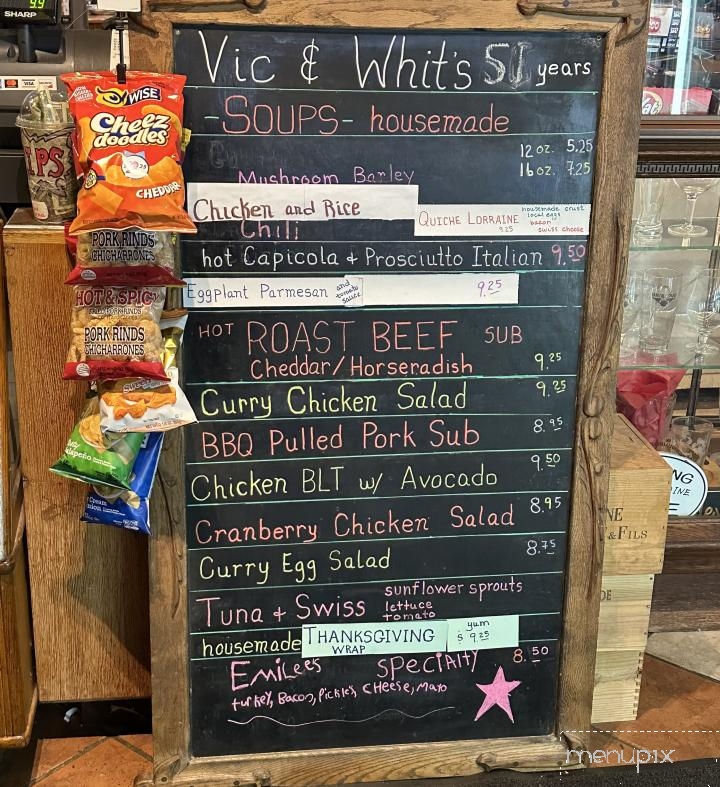 SHARP
Vic & Whit's 51 years
-SOUPS- housemade
12 oz. 5.25
16 oz. 7.25
Mushroom Barley
Chicken and Rice
Chili
QUICHE LORRAINE 9.25
housemade crust
local eggs
bacon
swiss cheese
hot Capicola & Prosciutto Italian 9.50
Eggplant Parmesan and tomato sauce 9.25
HOT ROAST BEEF SUB
Cheddar/Horseradish 9.25
Curry Chicken Salad 9.25
BBQ Pulled Pork Sub 8.95
Chicken BLT w/ Avocado 9.50
Cranberry Chicken Salad 8.95
Curry Egg Salad 8.75
Tuna + Swiss sunflower sprouts
lettuce
tomato
housemade THANKSGIVING WRAP yum $ 9.25
EmiLees SPecialty 8.50
turkey, Bacon, Pickles, CHeese, Mayo
WISE
Cheez doodles
CHEDDAR
PORK RINDS
CHICHARRONES
HOT & SPICY
PORK RINDS
CHICHARRONES
& FILS
menupix